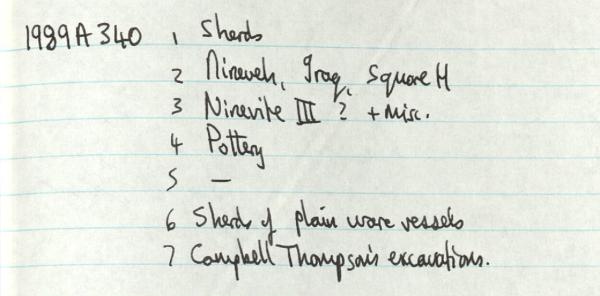 1989A340 1 Sherds
2 Nineveh, Iraq, Square H
3 Ninevite III ? + Misc.
4 Pottery
5 —
6 Sherds of plain ware vessels
7 Campbell Thompson's excavations.